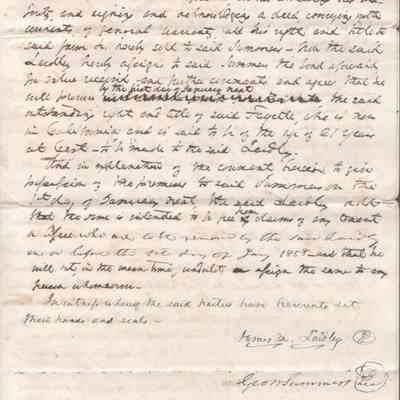 and signing and acknowledging a deed conveying with
covenants of general warranty, all his right and title to
said farm as herein sold to said Summers - Now the said
Laidley hereby assign to said Summers the bond aforesaid
for value received, and further covenants and agree that he
by the first day of January next
will procure the said
outstanding right and title of said Fayette, who is now
in California and is said to be of the age of 21 years
at least - to be made to the said Laidley.
And in explanation of the covenant herein to give
possession of the premises to said Summers on the
1st day of January next, the said Laidley
that the same is intended to be free from claims of any tenant
or who are to be removed by the said Laidley
on or before the 1st day of Jany 1858 and that he
will not, in the mean time, or assign the same to any
person whomsoever.
In witness whereof the said parties have hereunto set
their hands and seals -
Laidley
Geo W Summers